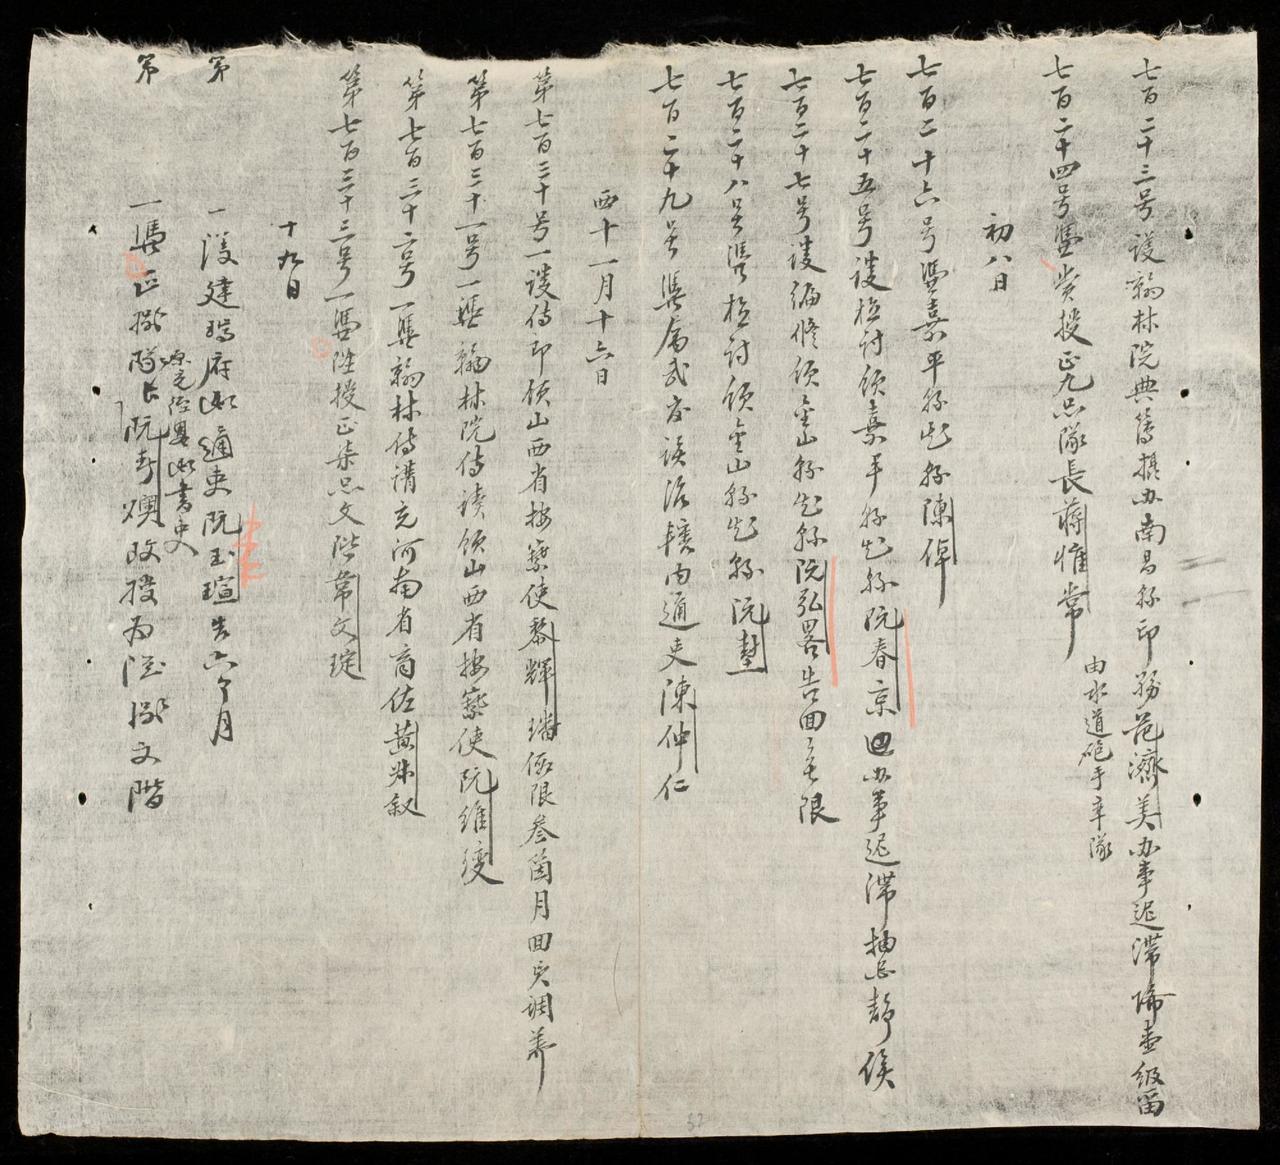 七百二十三号護翰林院典簿攝办南昌縣印務范濟美办事迟滯降壹級留
七百二十四号憑賞授正九品隊長蔣惟常
由水道砲手率隊
初八日
七百二十六号憑嘉平縣知縣陳倬
七百二十五号護檢討領嘉平縣知縣阮春京回办事迟滯抽出靜候
七百二十七号護編修領金山縣知縣阮弘畧告回无限
七百二十八号憑檢討領金山縣知縣阮塹
七百二十九号憑 通吏陳仲仁
西十一月十六日
第七百三十号一護侍郎領山西省按察使黎輝璠 限叁箇月回 調养
第七百三十一号一憑翰林院侍讀領山西省按察使阮維
第七百三十二号一憑翰林侍講充河南省商佐黃 叙
第七百三十三号一憑陞授正柒品文階韋文琔
十九日
第 一護建瑞府 通吏阮玉瑄告六个月
書吏
第 一憑正 隊長阮 改授为 文階